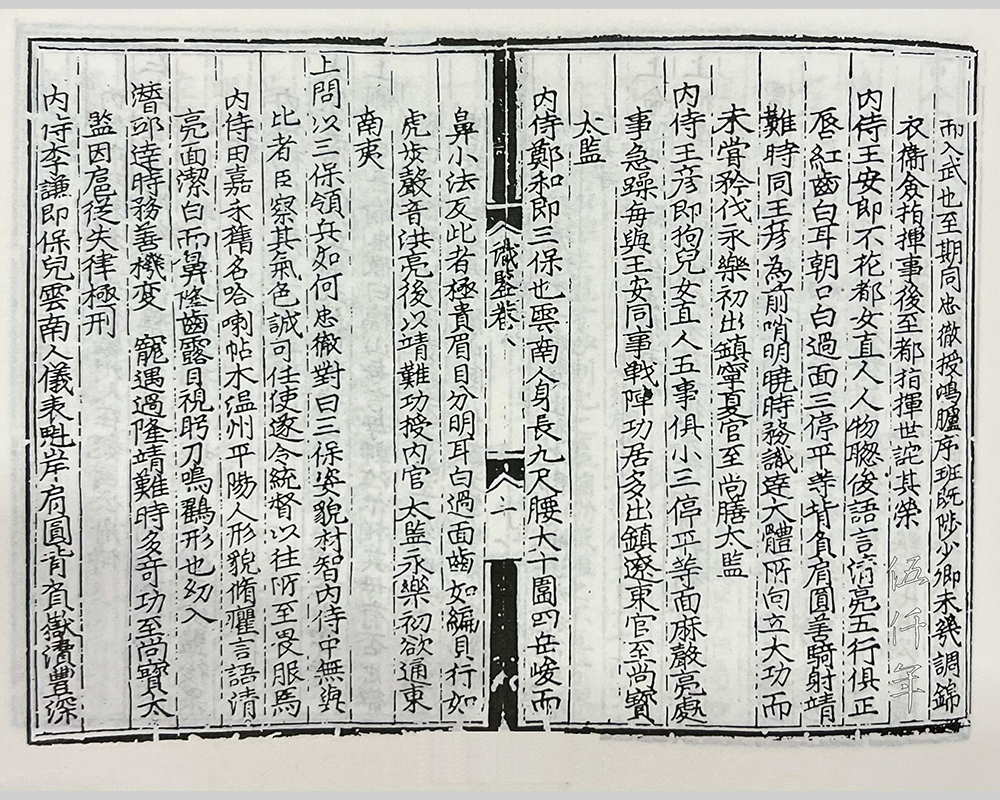 而入武也至期同忠徹授鴻臚序班既陟少卿未幾調錦
衣衛僉指揮事後至都指揮世詫其榮
内侍王安即不花都女直人人物聰俊語言清亮五行俱正
唇紅齒白耳朝口白過面三停平等背負肩圓善騎射靖
難時同王彦為前哨明曉時務識達大體所向立大功而
未嘗矜伐永樂初出鎮寧夏官至尚膳太監
内侍王彦即狗兒女直人五事俱小三停平等面麻聲亮處
事急躁每與王安同事戰陣功居多出鎮遼東官至尚寶
太監
内侍鄭和即三保也雲南人身長九尺腰大十圍四岳峻而
識鑒卷八
二
鼻小法反此者極貴眉目分明耳白過面齒如編貝行如
虎步聲音洪亮後以靖難功授内官太監永樂初欲通東
南夷
上問以三保領兵如何忠徹對曰三保姿貌材智内侍中無與
比者臣察其氣色誠可任使遂令統督以往所至畏服焉
内侍田嘉禾舊名哈喇帖木温州平陽人形貌脩癯言語清
亮面潔白而鼻隆齒露目視眄刀鳴鸛形也幼入
潛邸達時務善機變 寵遇過隆靖難時多奇功至尚寶太
監因扈從失律極刑
内侍李謙即保兒雲南人儀表魁岸肩圓背負嶽瀆豐深
伍仟年